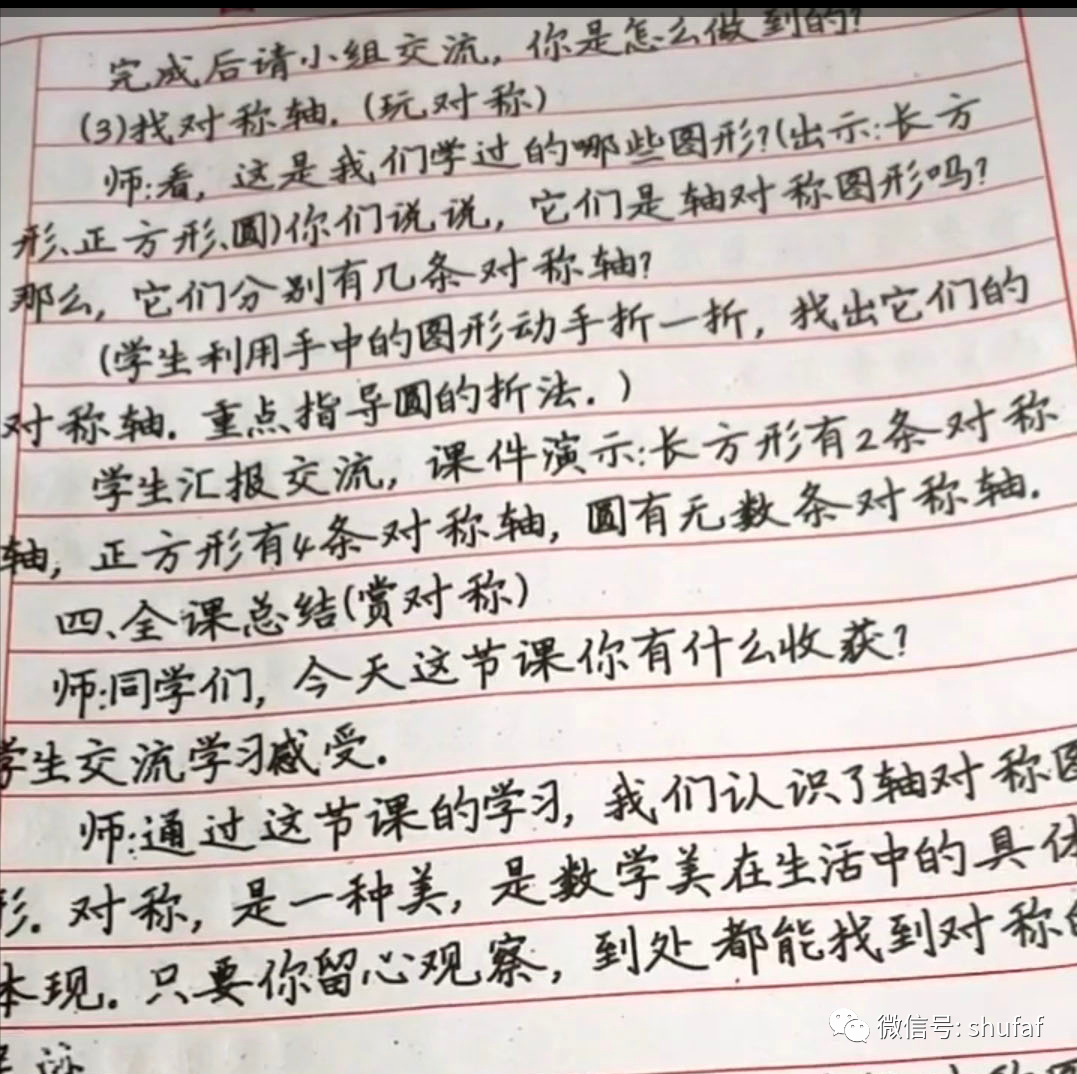 完成后请小组交流，你是怎么做到的?
(3)找对称轴.(玩对称)
师:看，这是我们学过的哪些图形?(出示:长方
形、正方形、圆)你们说说，它们是轴对称图形吗?
那么，它们分别有几条对称轴?
(学生利用手中的图形动手折一折，找出它们的
对称轴.重点指导圆的折法.)
学生汇报交流，课件演示:长方形有2条对称
轴，正方形有4条对称轴，圆有无数条对称轴.
四、全课总结(赏对称)
师:同学们，今天这节课你有什么收获?
学生交流学习感受.
师:通过这节课的学习，我们认识了轴对称图
形.对称，是一种美，是数学美在生活中的具体
体现。只要你留心观察，到处都能找到对称的
微信号: shufaf